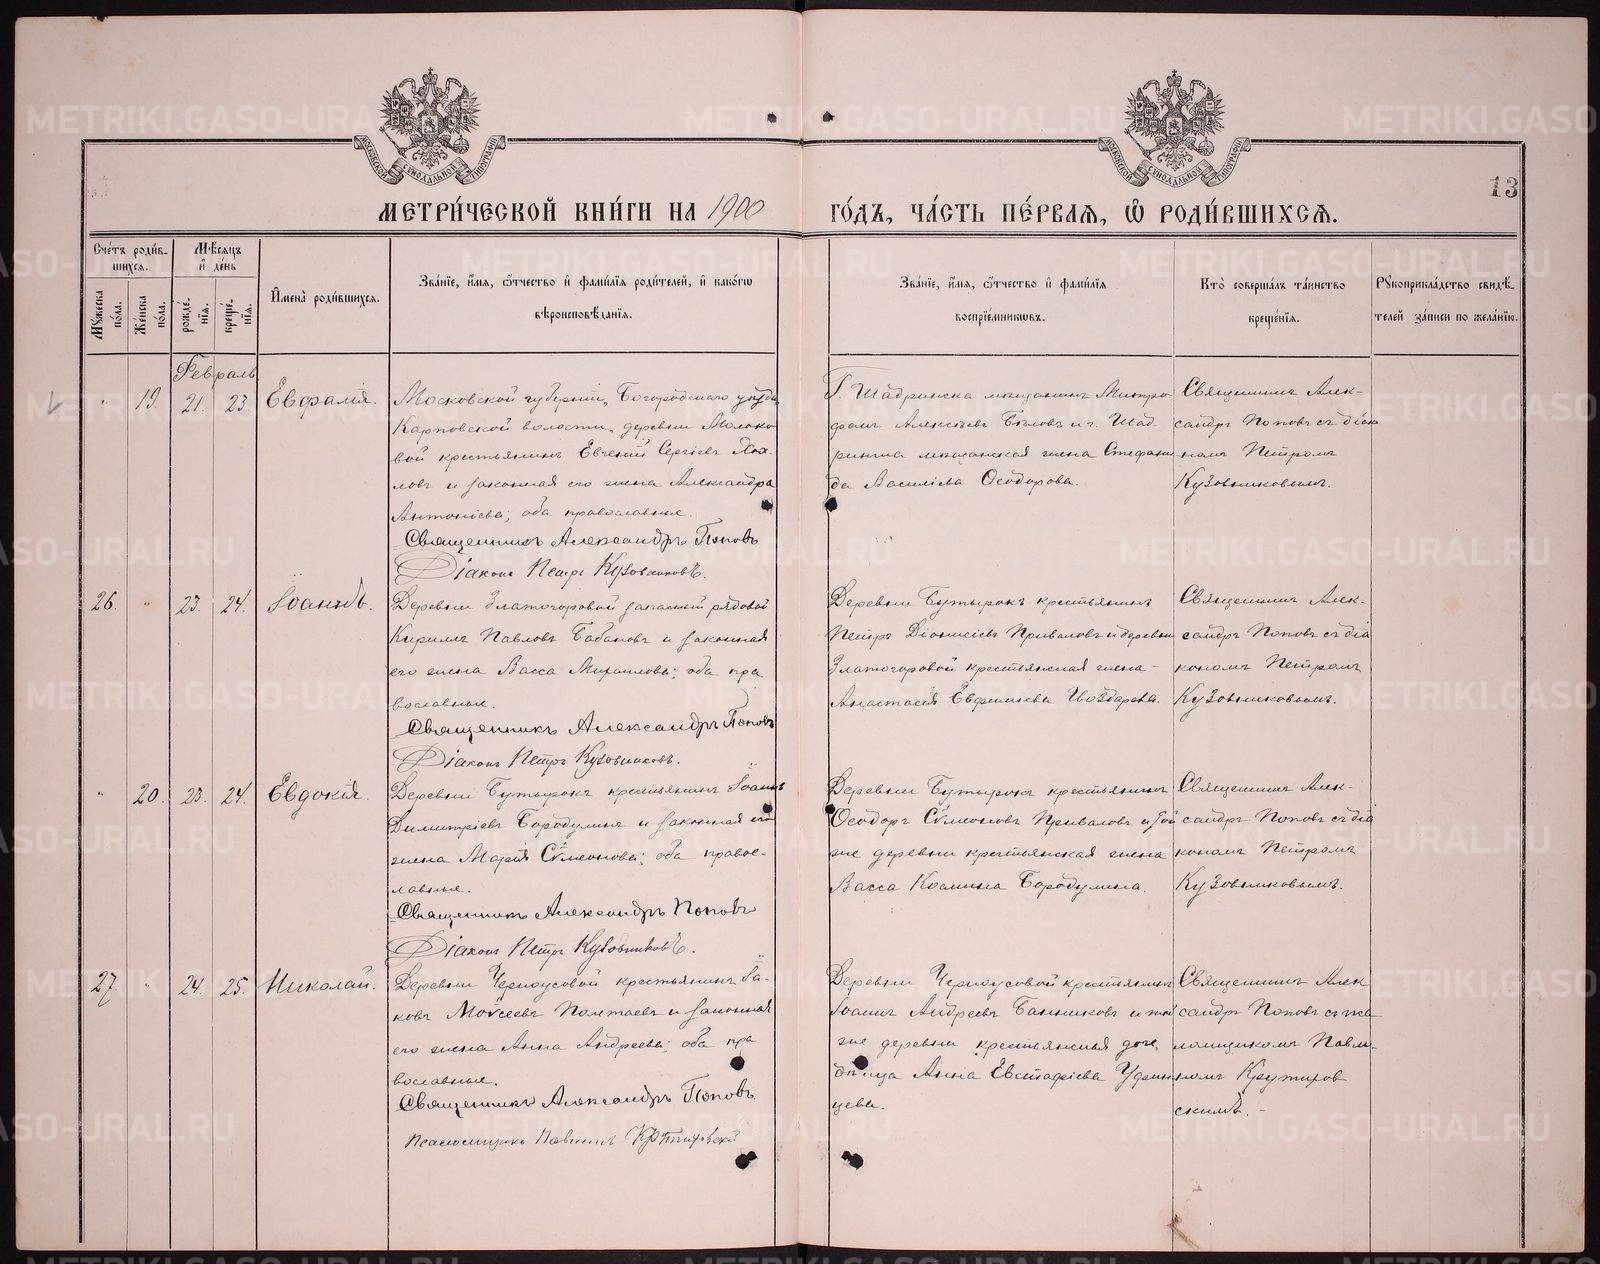 13
МЕТРИ́ЧЕСКОЙ КНИ́ГИ НА 1900 ГО́ДЪ, ЧА́СТЬ ПЕ́РВАѦ, Ѽ РОДИ́ВШИХСѦ.
Сче́тъ роди́в-
шихсѧ.
Мꙋ́жеска по́ла.
Же́нска по́ла.
Мѣ́сѧцъ
и҆ де́нь
рожде́-
нїѧ.
креще́-
нїѧ.
И҆мена̀ роди́вшихсѧ.
Зва́нїе, и҆́мѧ, ѻ҆́тчество и҆ фами́лїѧ роди́телей, и҆ како́гѡ
вѣроисповѣ́данїѧ.
Зва́нїе, и҆́мѧ, ѻ҆́тчество и҆ фами́лїѧ
воспрїе́мникѡвъ.
Кто̀ соверша́лъ та́инство
креще́нїѧ.
Рꙋкоприкла́дство свидѣ́-
телей за́писи по жела́нїю.
Февраль
" 19. 21. 23. Евфалія.
Московской губерніи, Богородскаго уѣзда,
Карповской волости, деревни Молоко
вой крестьянинъ Евгеній Сергіевъ
ловъ и законная его жена Александра
Антоніева; оба православные.
Священникъ Александръ Поповъ
Діаконъ Петръ Кузовниковъ.
Г. Шадринска мѣщанинъ Митро
фанъ Алексѣевъ Бѣловъ и г. Шад
ринска мѣщанская жена Стефани
да Василіева Ѳеодорова.
Священникъ Алек-
сандръ Поповъ съ діако
номъ Петромъ
Кузовниковымъ.
26. " 23. 24. Іоаннъ.
Деревни Златогоровой запасный рядовой
Кириллъ Павловъ Бабановъ и законная
его жена Васса Михаилова; оба пра
вославные.
Священникъ Александръ Поповъ
Діаконъ Петръ Кузовниковъ.
Деревни Бутырокъ крестьянинъ
Петръ Діонисіевъ Приваловъ и деревни
Златогоровой крестьянская жена
Анастасія Евфиміева
Священникъ Алек-
сандръ Поповъ съ діа
кономъ Петромъ
Кузовниковымъ.
" 20. 23. 24. Евдокія.
Деревни Бутырокъ крестьянинъ Іоаннъ
Димитріевъ Бородулинъ и законная его
жена Марія Сѵмеонова; оба правос-
лавные.
Священникъ Александръ Поповъ
Діаконъ Петръ Кузовниковъ.
Деревни Бутырокъ крестьянинъ
Ѳеодоръ Сѵмеоновъ Приваловъ и той
же деревни крестьянская жена
Васса Козмина Бородулина.
Священникъ Алек-
сандръ Поповъ съ діа
кономъ Петромъ
Кузовниковымъ.
27. " 24. 25. Николай.
Деревни Черноусовой крестьянинъ Іа-
ковъ Моѵсеевъ Полтаевъ и законная
его жена Анна Андреева; оба пра
вославные.
Священникъ Александръ Поповъ.
Псаломщикъ Павлинъ
Деревни Черноусовой крестьянинъ
Іоаннъ Андреевъ Банниковъ и той
же деревни крестьянская дочь,
дѣвица Анна Евстафіева Уфин
цева.
Священникъ Алек
сандръ Поповъ съ пса
ломщикомъ Павли-
номъ Крутиков
скимъ.